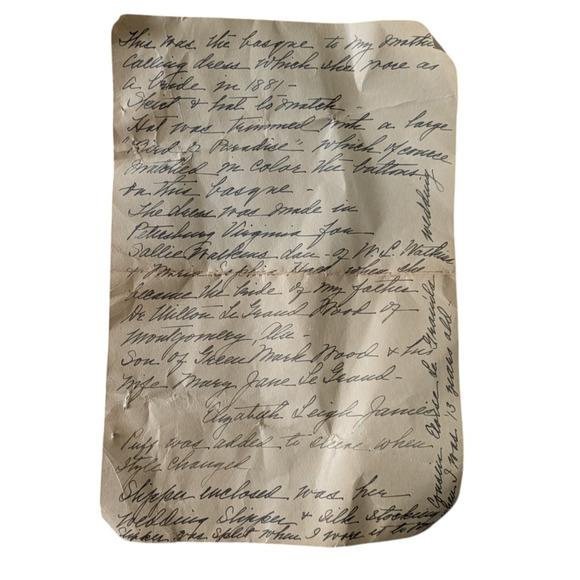 This was the basque to my mother
calling dress which she wore as
a bride in 1881 -
Skirt & hat to match -
Hat was trimmed with a large
"Bird of Paradise" which of course
matched in color the buttons
on this basque -
The dress was made in
Petersburg Virginia for
Sallie Watkins dau - of W. L. Watkins
& Maria Sophia when she
became the bride of my father
Dr Le Grand Wood of
Montgomery, Ala -
Son of Green Mark Wood & his
wife Mary Jane Le Grand -
Elizabeth Leigh James
Puff was added to sleeve when
style changed
Slipper enclosed was her
wedding slipper & silk stocking
Slipper was split when I wore it to
Cousin Le Grand's wedding
when I was 13 years old